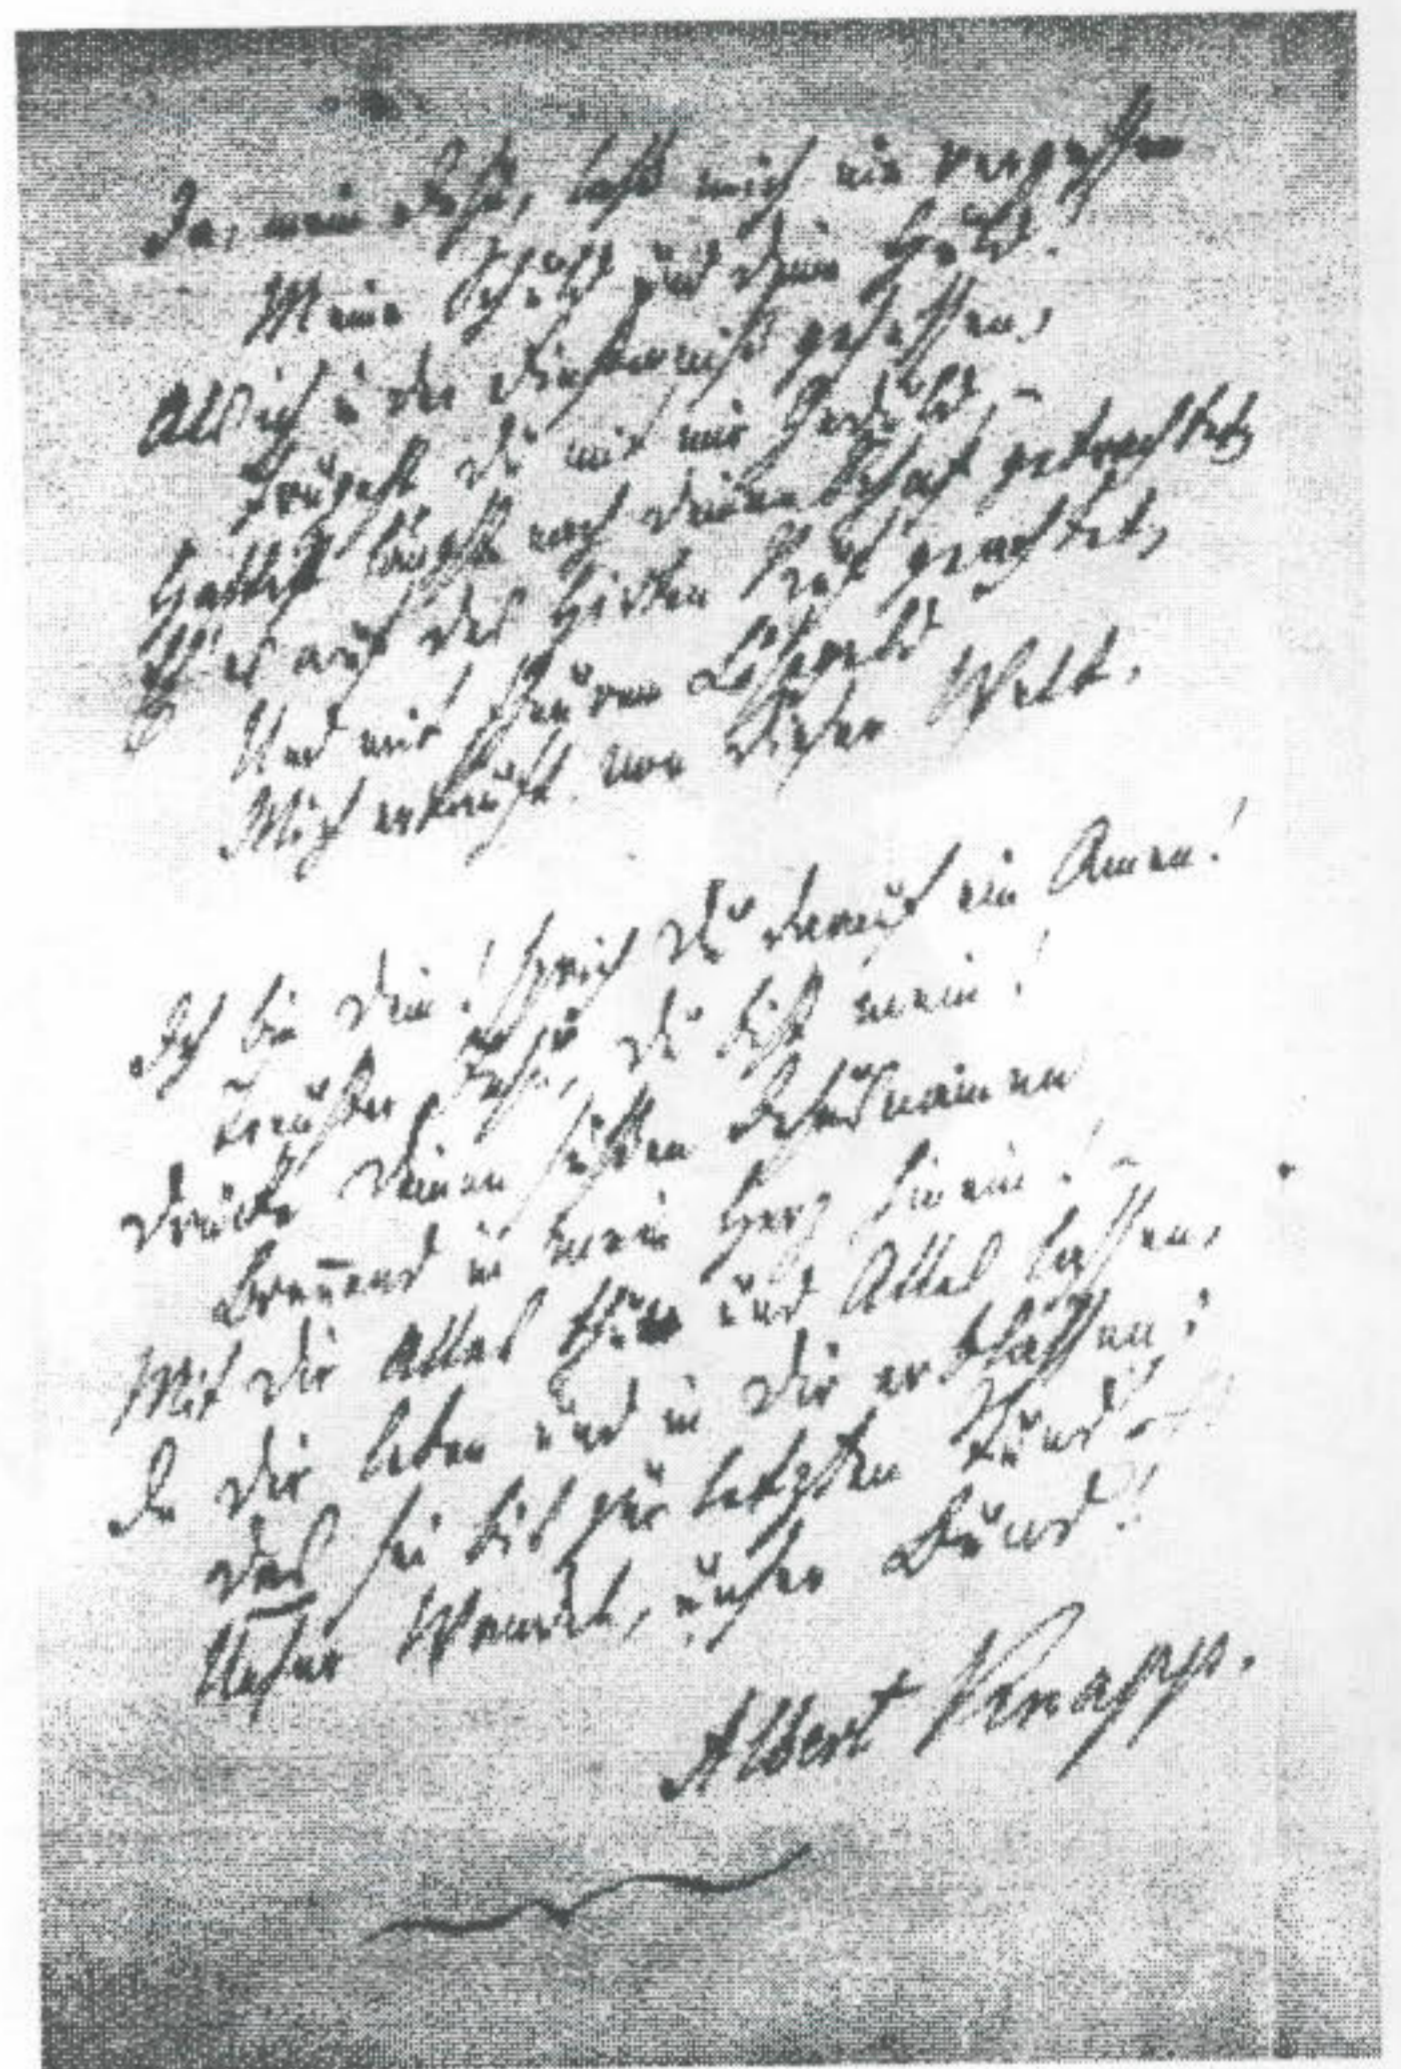 Ja, mein Jesu, laß mich nie vergessen
Meine Schuld und Deine Huld.
Als ich in der Finsterniß gesessen,
Trugest Du mit mir Geduld,
Hattest längst nach Deinem Schaf getrachtet,
Eh' es auf des Hirten Ruf geachtet,
Und mit theurem Lösgeld
Mich erkauft von dieser Welt.
Ich bin Dein! Sprich Du darauf ein Amen!
Treuster Jesu, Du bist mein!
Drücke Deinen süßen Jesusnamen
Brennend in mein Herz hinein!
Mit Dir Alles thun und Alles lassen,
In Dir leben und in Dir erblassen:
Das sei bis zur letzten Stund'
Unser Wandel, unser Bund!
Albert Knapp.